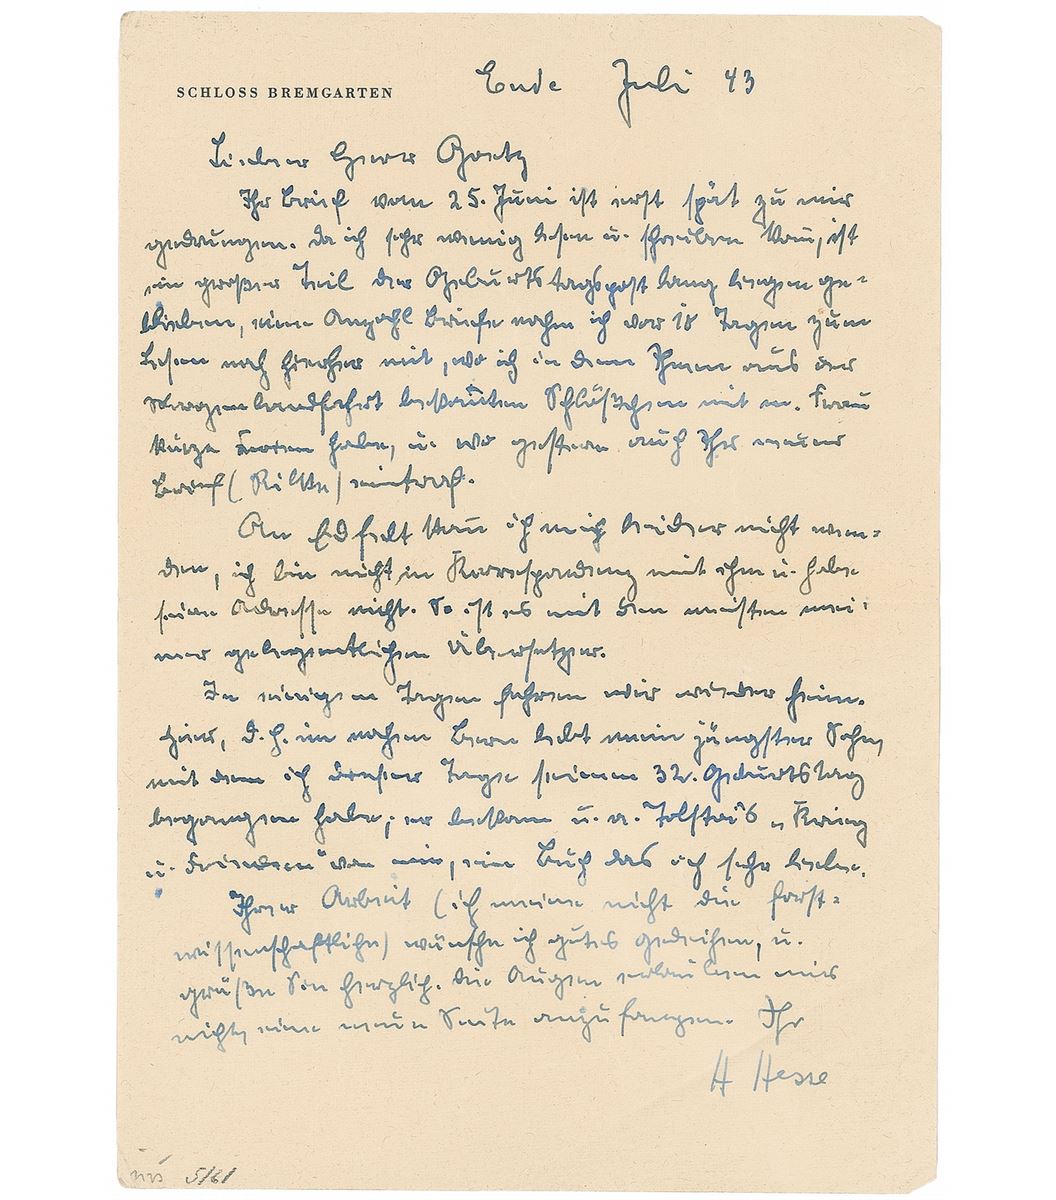 SCHLOSS BREMGARTEN
Ende Juli 43
Lieber Herr Goetz
Ihr Brief vom 25. Juni ist erst spät zu mir
gedrungen. Da ich sehr wenig lesen u. schreiben kann, ist
ein großer Teil der Geburtstagspost lang liegen ge-
blieben, eine Anzahl Briefe nahm ich vor 18 Tagen zum
Lesen noch hierher mit, wo ich in dem Ihnen aus der
Morgenlandfahrt bekannten Schlößchen mit m. Frau
kurze Ferien habe, u. wo gestern auch Ihr neuer
Brief (Rilke) eintraf.
An Edfelt kann ich mich leider nicht wen-
den, ich bin nicht in Korrespondenz mit ihm u. habe
seine Adresse nicht. So ist es mit den meisten mei-
ner gelegentlichen Übersetzer.
In einigen Tagen fahren wir wieder heim.
Hier, d. h. im nahen Bern lebt mein jüngster Sohn,
mit dem ich dieser Tage seinen 32. Geburtstag
begangen habe; er bekam u. a. Tolstoi's „Krieg
u. Frieden" von mir, ein Buch das ich sehr liebe.
Ihrer Arbeit (ich meine nicht die forst-
wissenschaftliche) wünsche ich gutes Gedeihen, u.
grüße Sie herzlich. Die Augen erlauben mir
nicht, eine neue Seite anzufangen. Ihr
H Hesse
5/61